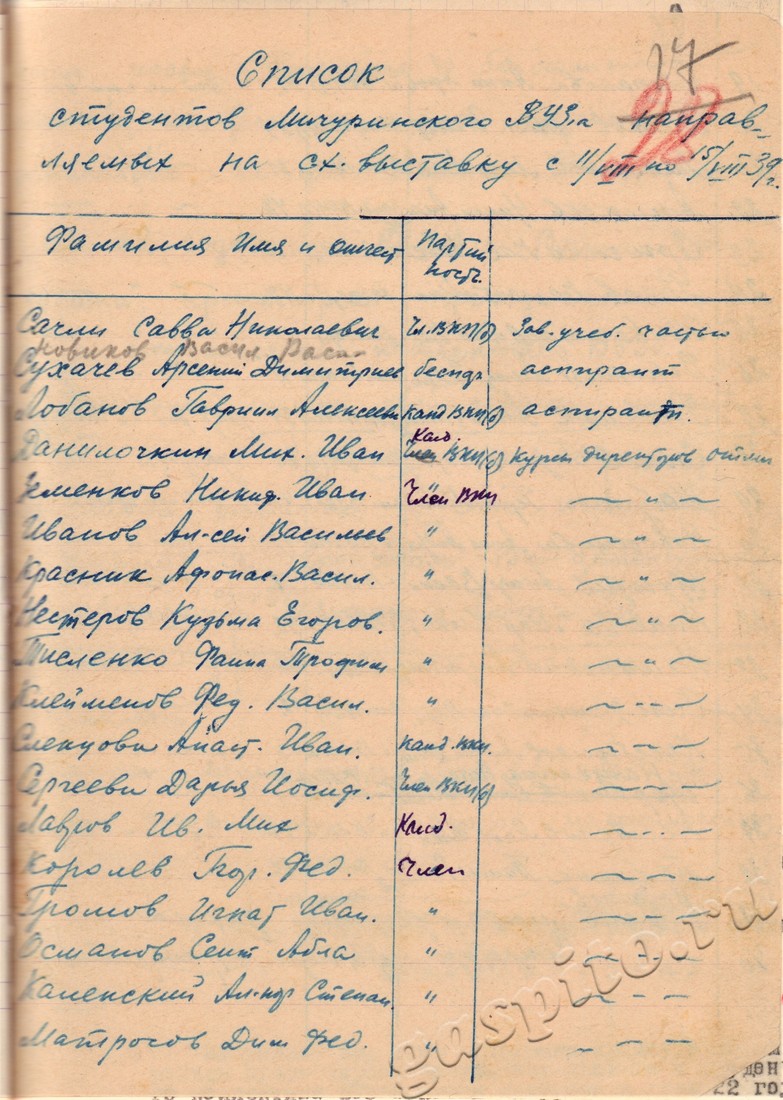 17
Список
студентов Мичуринского ВУЗ.а направ-
ляемых на сх. выставку с 11/VIII по 15/VIII 39 г.
Фамилия Имя и отчест Партий
ность.
Сачли Савва Николаевич Чл. ВКП(б) Зав. учеб. частью
Новиков Васил Васи-
Сухачев Арсений Димитриев беспар аспирант
Лобанов Гавриил Алексееви канд ВКП(б) аспирант.
Данилочкин Мих. Иван Канд. Член ВКП(б) Курсы директоров
Земенков Никиф. Иван Член ВКП — " —
Иванов Ал-сей Васильев " — " —
Красник Афонас. Васил. " — " —
Нестеров Кудьма Егоров. " — " —
Тисленко Фаина Трофим " — " —
Клейменов Фед. Васил. " — " —
Слепцова Анаст. Иван. канд. ВКП. — " —
Сергеева Дарья Иосиф. Член ВКП(б) — " —
Лавров Ив. Мих Канд. — " —
Королев Фед. Член — " —
Громов Игнат Иван. " — " —
Османов Сеит Абла " — " —
Каменский Ал-ндр Степан. " — " —
Матросов Дим Фед. " — " —
gaspito.ru
22 го